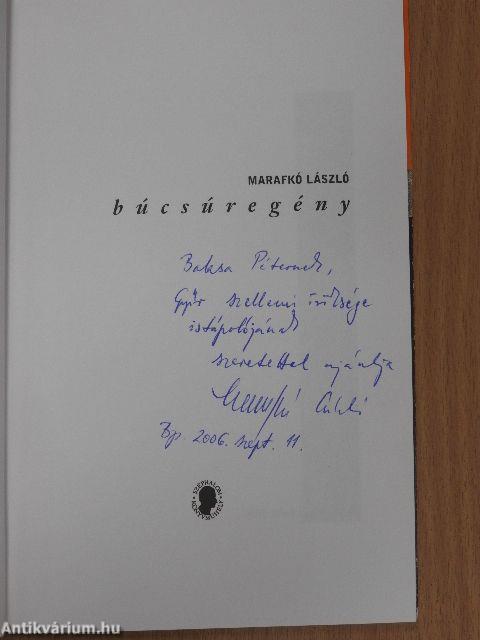 MARAFKÓ LÁSZLÓ
búcsúregény
Baksa Péternek,
Győr szellemi
istápolójának
szeretettel ajánlja
Bp. 2006. szept. 11.
SZÉPHALOM
KÖNYVMŰHELY
Antikvárium.hu